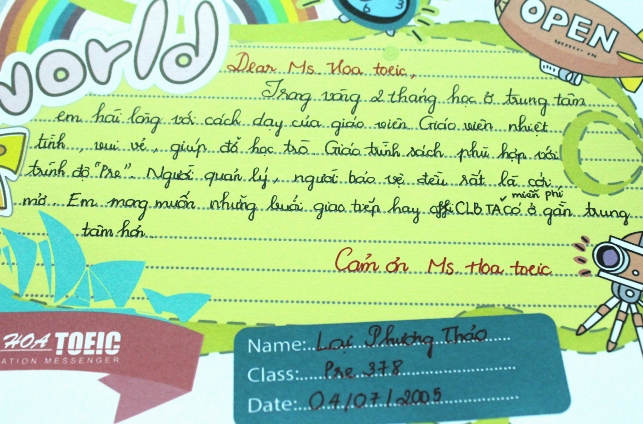 world
OPEN
6 3
Dear Ms. Hoa toeic,
Trong vòng 2 tháng học ở trung tâm
em hài lòng với cách dạy của giáo viên. Giáo viên nhiệt
tình, vui vẻ, giúp đỡ học trò. Giáo trình sách phù hợp với
trình độ "Pre". Người quản lý, người bảo vệ đều rất là cởi
mở. Em mong muốn những buổi giao tiếp hay CLB TA có miễn phí ở gần trung
tâm hơn
Cảm ơn Ms. Hoa toeic
HOA TOEIC
ATION MESSENGER
Name: Lại Phương Thảo
Class: Pre 378
Date: 04/07/2005